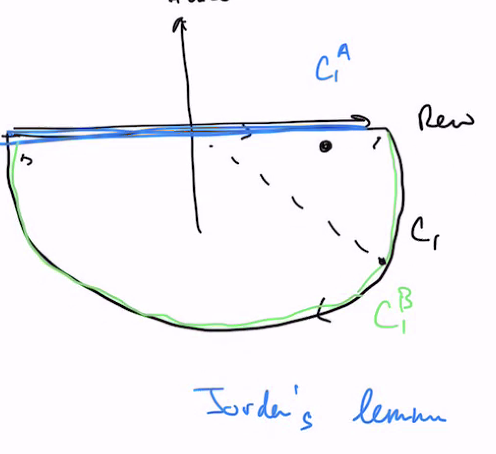 C₁ᴬ
Rew
C₁
C₁ᴮ
Jordan's lemma